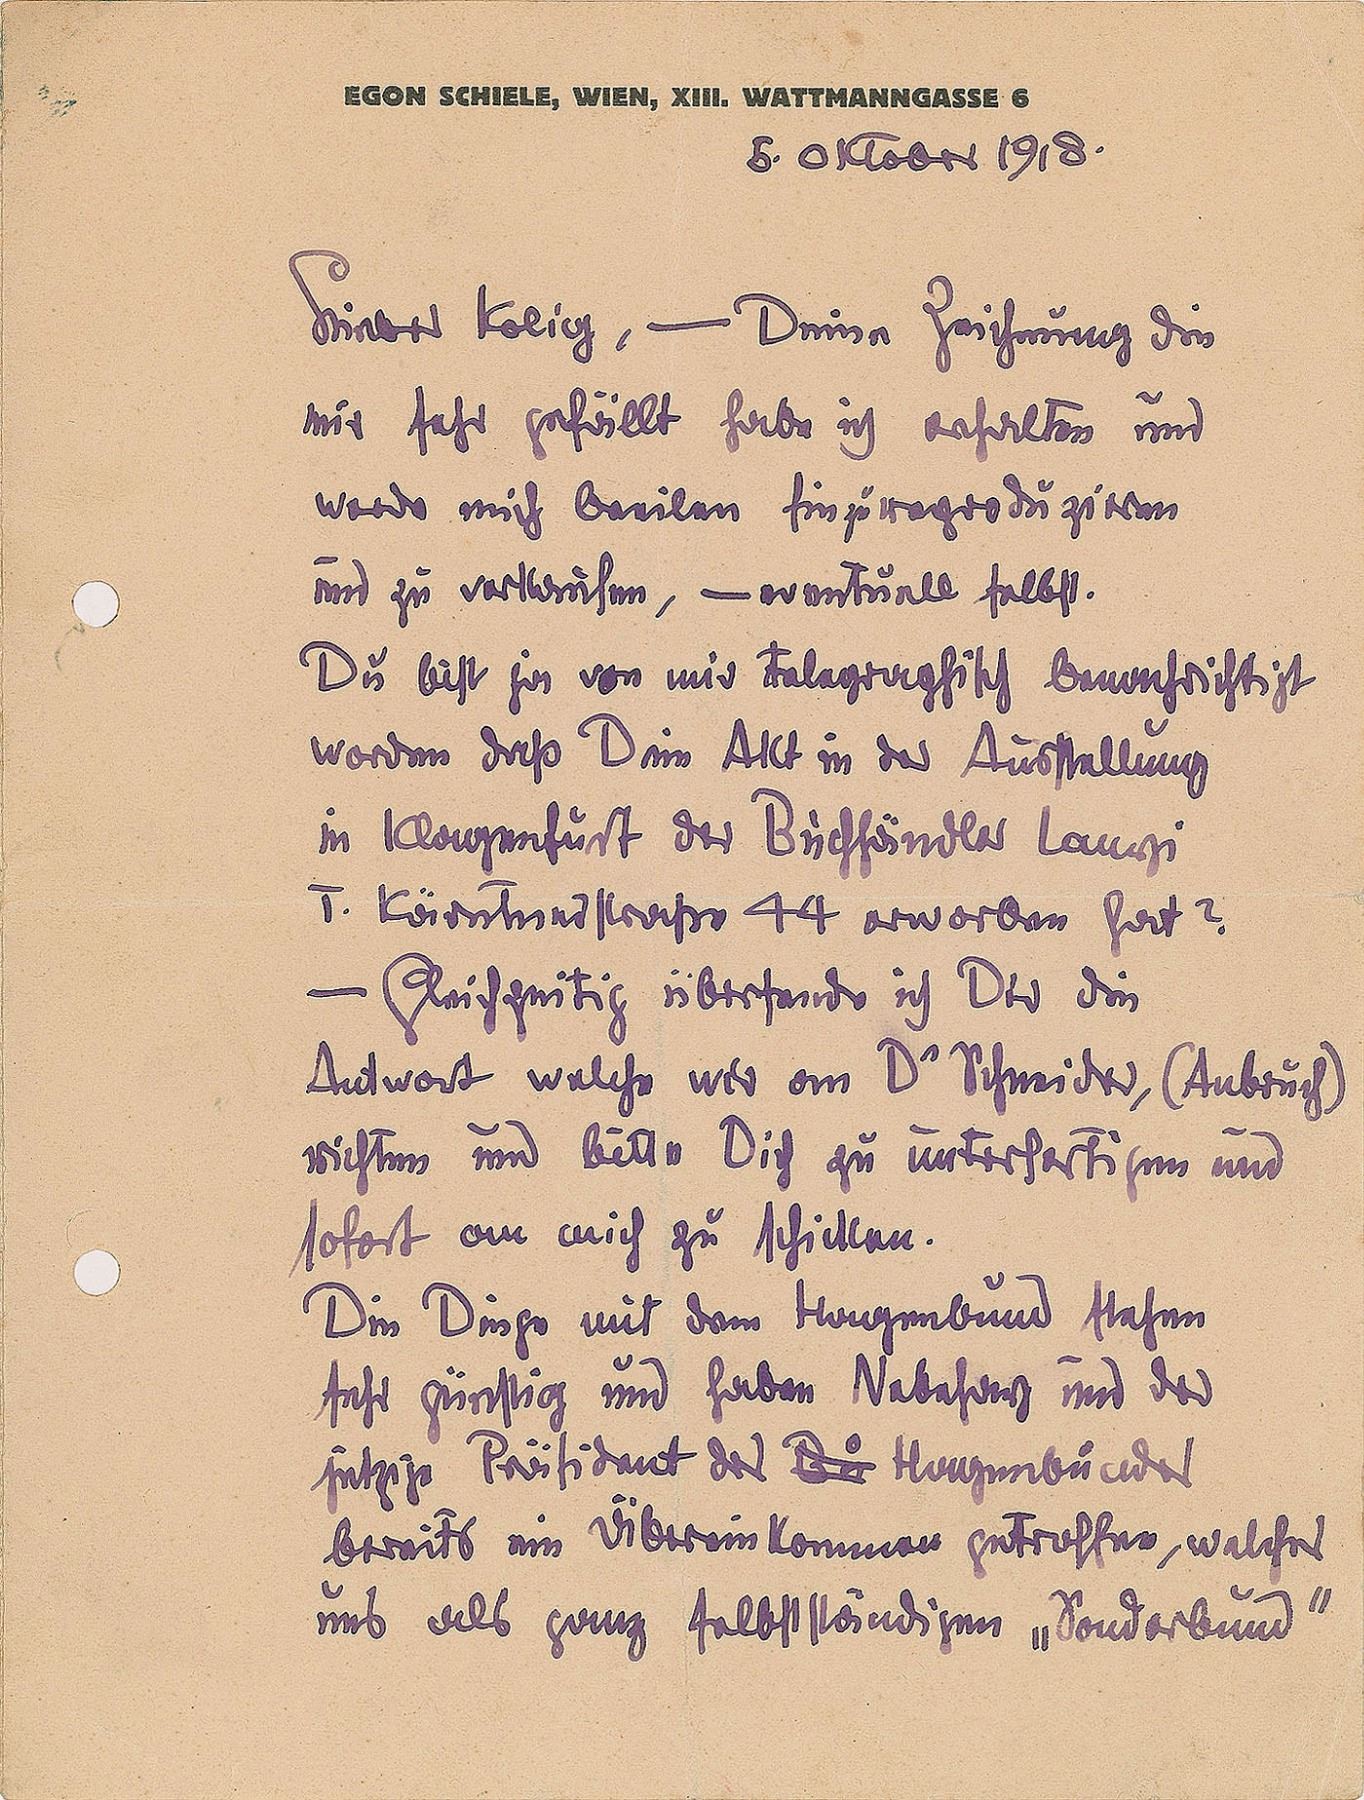 EGON SCHIELE, WIEN, XIII. WATTMANNGASSE 6
5. Oktober 1918.
Lieber Kolig, — Deine Zeichnung die
mir sehr gefällt habe ich erhalten und
werde mich beeilen sie zu reproduzieren
und zu verkaufen, — eventuell selbst.
Du bist ja von mir telegraphisch benachrichtigt
worden daß Dein Akt in der Ausstellung
in Klagenfurt der Buchhändler Lanyi
I. Kärntnerstraße 44 erworben hat?
— Gleichzeitig übersende ich Dir die
Antwort welche wir an Dr Schneider, (Anbruch)
richten und bitte Dich zu unterfertigen und
sofort an mich zu schicken.
Die Dinge mit dem Hagenbund stehen
sehr günstig und haben Nebehay und der
jetzige Präsident des Hagenbundes
bereits ein Übereinkommen getroffen, welches
uns als ganz selbstständigen „Sonderbund"